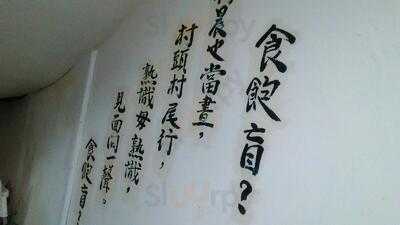 食飽盲？
晨也當晝，
村頭村尾行，
熟識毋熟識，
見面問一聲。
食飽盲？